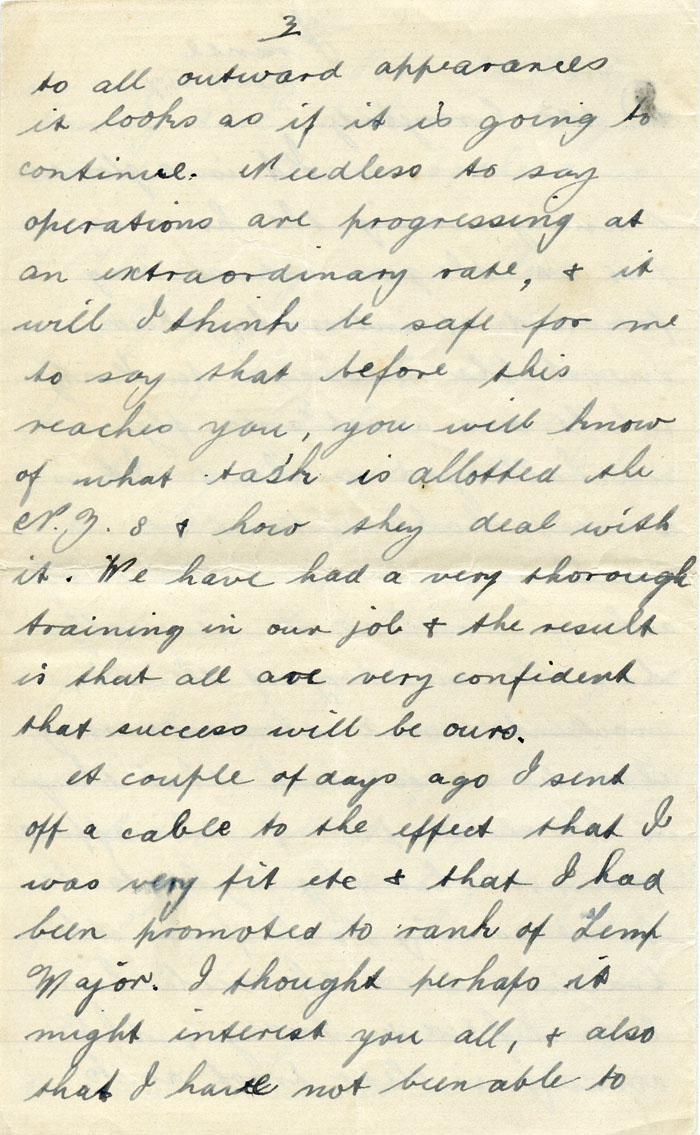 3
to all outward appearances
it looks as if it is going to
continue. Needless to say
operations are progressing at
an extraordinary rate, & it
will I think be safe for me
to say that before this
reaches you, you will know
of what task is allotted the
N.Z. s & how they deal with
it. We have had a very thorough
training in our job & the result
is that all are very confident
that success will be ours.
A couple of days ago I sent
off a cable to the effect that I
was very fit etc & that I had
been promoted to rank of Temp
Major. I thought perhaps it
might interest you all, & also
that I have not been able to